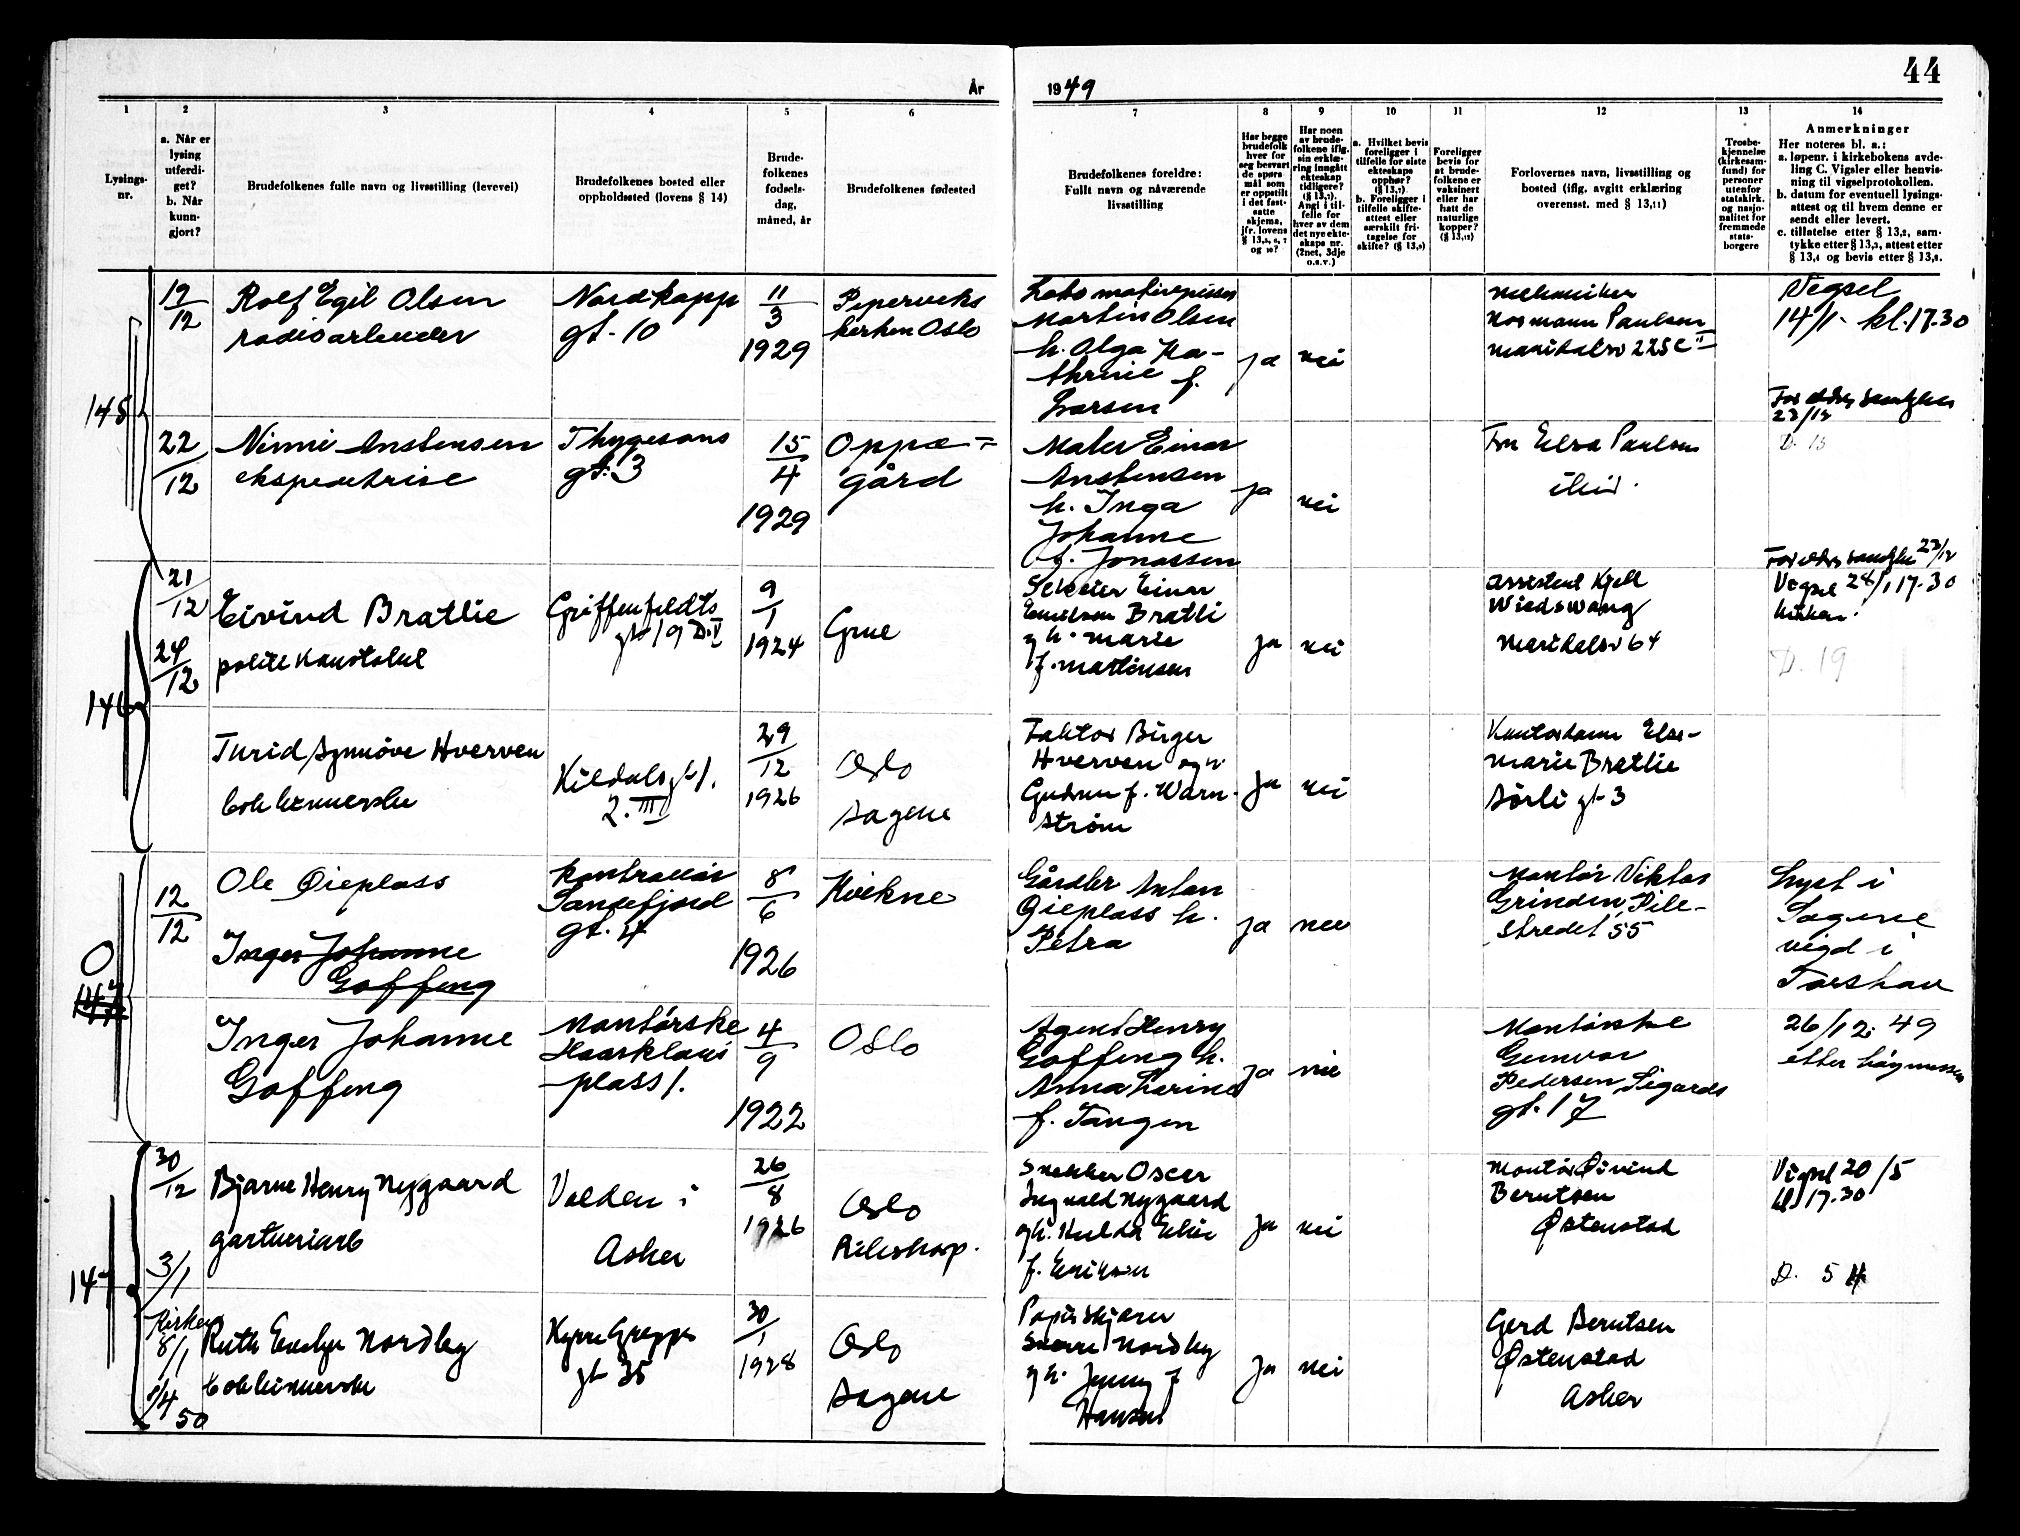 År
1949
44
1
2
3
4
5
6
7
8
9
10
11
12
13
14
Lysings-
nr.
a. Når er
lysing
utferdi-
get?
b. Når
kunn-
gjort?
Brudefolkenes fulle navn og livsstilling (levevei)
Brudefolkenes bosted eller
oppholdssted (lovens § 14)
Brude-
folkenes
fødsels-
dag,
måned, år
Brudefolkenes fødested
Brudefolkenes foreldre:
Fullt navn og nåværende
livsstilling
Har begge
brudefolk
hver for
seg besvart
de spørs-
mål som
er oppstilt
i det fast-
satte
skjema,
jfr. lovens
Har noen
av brude-
folkene iflg.
sin erklæ-
ring inngått
ekteskap
tidligere?
(§ 13,7).
Angi i til-
felle for
hver av dem
det nye ekte-
skaps nr.
(2net, 3dje
o.s.v.)
a. Hvilket bevis
foreligger i
tilfelle for siste
ekteskaps
opphør?
(§ 13,7)
b. Foreligger i
tilfelle skifte-
attest eller
særskilt fri-
tagelse for
skifte? (§ 13,8)
Foreligger
bevis for
at brude-
folkene er
vaksinert
eller har
hatt de
naturlige
kopper?
(§ 13,12)
Forlovernes navn, livsstilling og
bosted (iflg. avgitt erklæring
overensst. med § 13,11)
Trosbe-
kjennelse
(kirkesam-
fund) for
personer
utenfor
statskirk.
og nasjo-
nalitet for
fremmede
stats-
borgere
Anmerkninger
Her noteres bl. a.:
a. løpenr. i kirkebokens avde-
ling C. Vigsler eller henvis-
ning til vigselprotokollen.
b. datum for eventuell lysings-
attest og til hvem denne er
sendt eller levert.
c. tillatelse etter § 13,2, sam-
tykke etter § 13,3, attest etter
§ 13,4 og bevis etter § 13,5.
145
19/12
Rolf Egil Olsen
radioarbeider
Nordkapp
gt. 10
11/3
1929
Piperviks
kirken Oslo
Lokomotivpusser
Martin Olsen
h. Olga Ka-
thrine f.
Larsen
ja
nei
mekaniker
Normann Paulsen
Maridalsv 225 c II
Vigsel
14/1 kl. 17.30
23/12
22/12
Ninni Anstensen
ekspeditrise
Thygesons
gt. 3
15/4
1929
Oppe=
gård
Maler Einar
Anstensen
h. Inga
Johanne
f. Jonassen
ja
nei
Fru Elsa Paulsen
ibid.
D. 13
146
21/12
24/12
Eivind Bratlie
politikonstabel
Griffenfeldts
gt 19 D. V
9/1
1924
Grue
Einar
Bratli
g h. Marie
f. Martinsen
ja
nei
assistent Kjell
Wiedswang
Maridalsv 64
23/12
Vigsel 28/1 17.30
kirken!
D. 19
Turid Synnöve Hverven
bokbinnerske
Kildals gt 1.
2. III
29/12
1926
Oslo
Sagene
Faktor Birger
Hverven og h.
Gudrun f. Warn-
ström
ja
nei
Kontordame Else-
Marie Bratlie
Sörli gt 3
O
147
12/12
Ole Øieplass
Inger Johanne
Goffeng
kontrollör
Sandefjord
gt. 4
8/6
1926
Kvikne
Gårdbr Anton
Øieplass h.
Petra
ja
nei
Montör Viktor
Grinden, Pile-
stredet 55
Lyst i
Sagene
vigd i
Torshov
Inger Johanne
Goffeng
Montörske
Haarklous
plass 1.
4/9
1922
Oslo
Agent Henry
Goffeng h.
Anna Karine
f. Tangen
ja
nei
Montörske
Gunvor
Pedersen, Sigurds
gt. 17
26/12 49
etter högmessen
147
30/12
3/1
Kirken
8/1
1/4
50
Bjarne Henry Nygaard
gartneriarb
Volden i
Asker
26/8
1926
Oslo
Rikshosp.
Snekker Oscar
Ingvald Nygaard
gh. Hulda Elise
f. Eriksen
ja
nei
Montör Øivind
Berntsen
Østenstad
Vigsel 20/5
kl 17.30
D. 54
Ruth Evelyn Nordby
bokbinnerske
Kyrre Grepps
gt 35
30/1
1928
Oslo
Sagene
Papirskjærer
Sverre Nordby
g h. Jenny f
Hansen
ja
nei
Gerd Berntsen
Østenstad
Asker